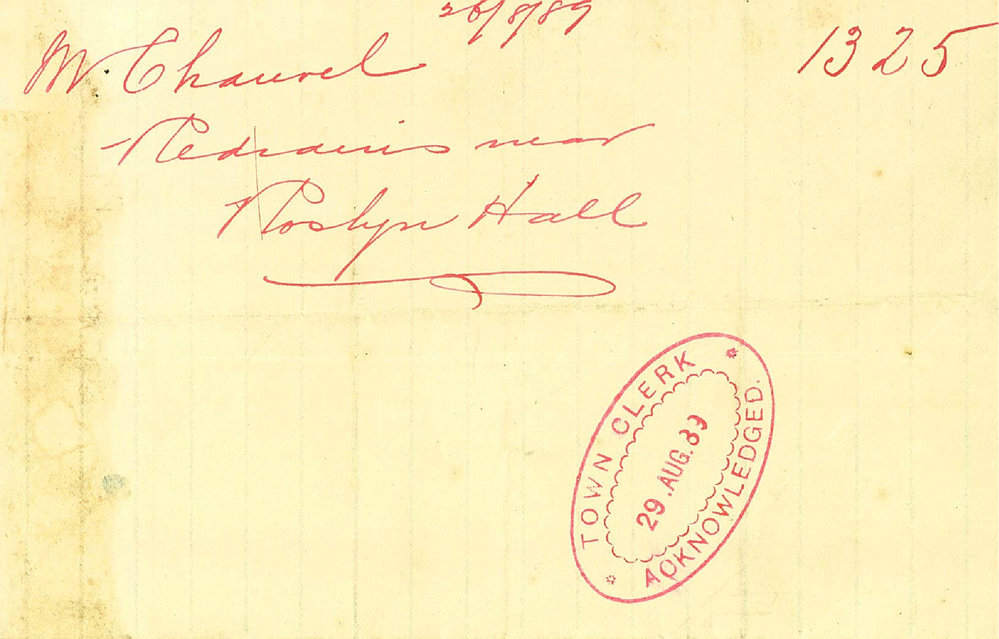 26/8/89
1325
Mr. Chauvel
Re drains near
Roslyn Hall
TOWN CLERK
29. AUG. 89
ACKNOWLEDGED.